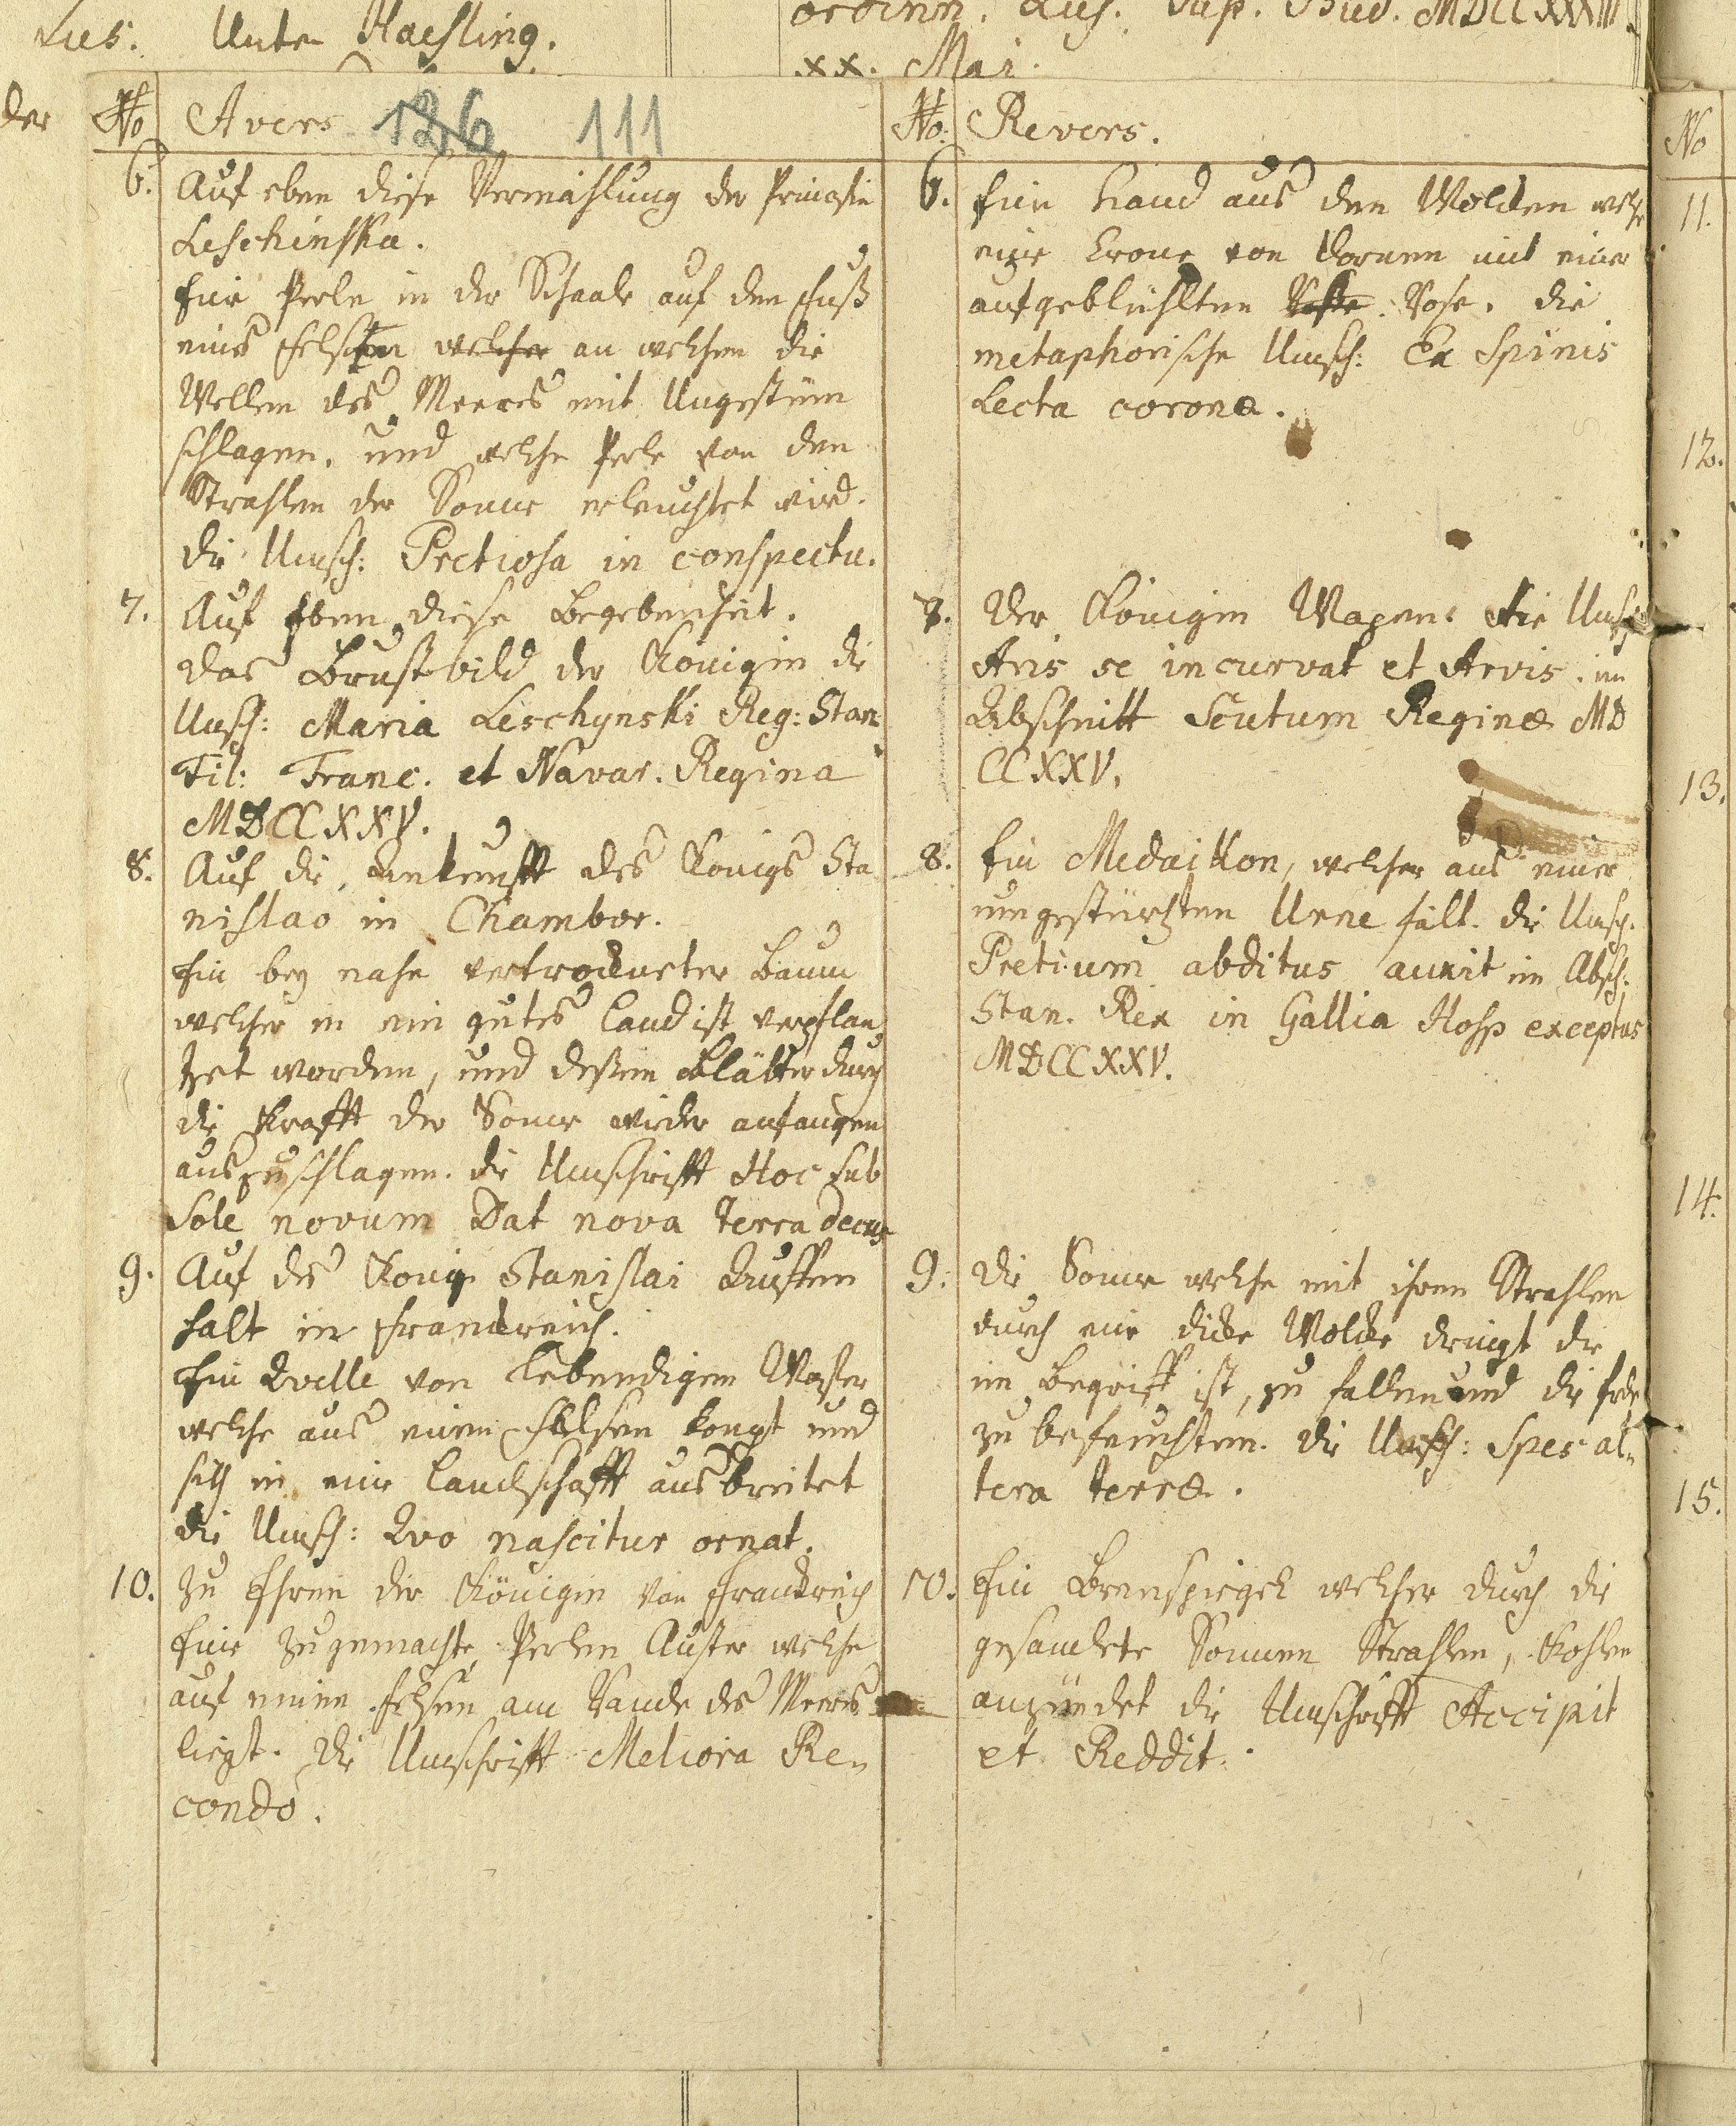 Lies. Unten Haesling.
ordinn. Lus. Sup. Bud. MDCCXXXIII.
xx. Mai.
der
No Avers 126 111
6. Auf eben diese Vermählung der Princeßin
Leschinska.
Eine Perle in der Schaale auf den Fuß
eines Felsen welcher an welchen die
Wellen des Meeres mit Ungestüm
schlagen, und welche Perle von den
Strahlen der Sonne erleuchtet wird.
die Umsch: Pretiosa in conspectu.
7. Auf Eben diese Begebenheit.
das Brustbild der Königin die
Umsch: Maria Leschynski Reg: Stan
Fil: Franc. et Navar. Regina
MDCCXXV.
8. Auf die Ankunfft des Königs Sta
nislao in Chambor.
Ein bey nahe vertrockneter Baum
welcher in ein gutes Land ist verpflan
zet worden, und deßen Blätter durch
die Krafft der Sonne wieder anfangen
auszuschlagen. die Umschrifft Hoc sub
Sole novum Dat nova terra decus
9. Auf des König Stanislai Auffen
halt in Franckreich.
Ein Qvelle von lebendigem Waßer
welche aus einem Felsen kompt und
sich in eine Landschafft ausbreitet
die Umsch: Qvo nascitur ornat.
10. Zu Ehren der Königin von Franckreich
Eine zugemachte Perlen Auster welche
auf einem Felsen am Rande des Meeres
liegt. Die Umschrifft Meliora Re-
condo.
No: Revers.
6. Eine Hand aus den Wolcken welche
eine Crone von Dornen mit einer
aufgeblühten Rose. die
metaphorische Umsch: Ex Spinis
Lecta corona.
7. Der Königin Wapen. die Umsch
Aris se incurvat et Arvis. im
Abschnitt Scutum Reginæ MD
CCXXV.
8. Ein Medaillon, welcher aus einer
umgestürtzten Urne fält. die Umsch.
Pretium abditus auxit im Absch:
Stan. Rex in Gallia Hosp exceptus
MDCCXXV.
9. Die Sonne welche mit ihren Strahlen
durch eine dicke Wolcke dringt die
im Begriff ist, zu fallen und die Erde
zu befeuchten. Die Umsch: Spes al-
tera terræ.
10. Ein Brenspiegel welcher durch die
gesamlete Sonnen Strahlen, Kohlen
anzündet die Umschrifft Accipit
et Reddit.
No
11.
12.
13.
14.
15.